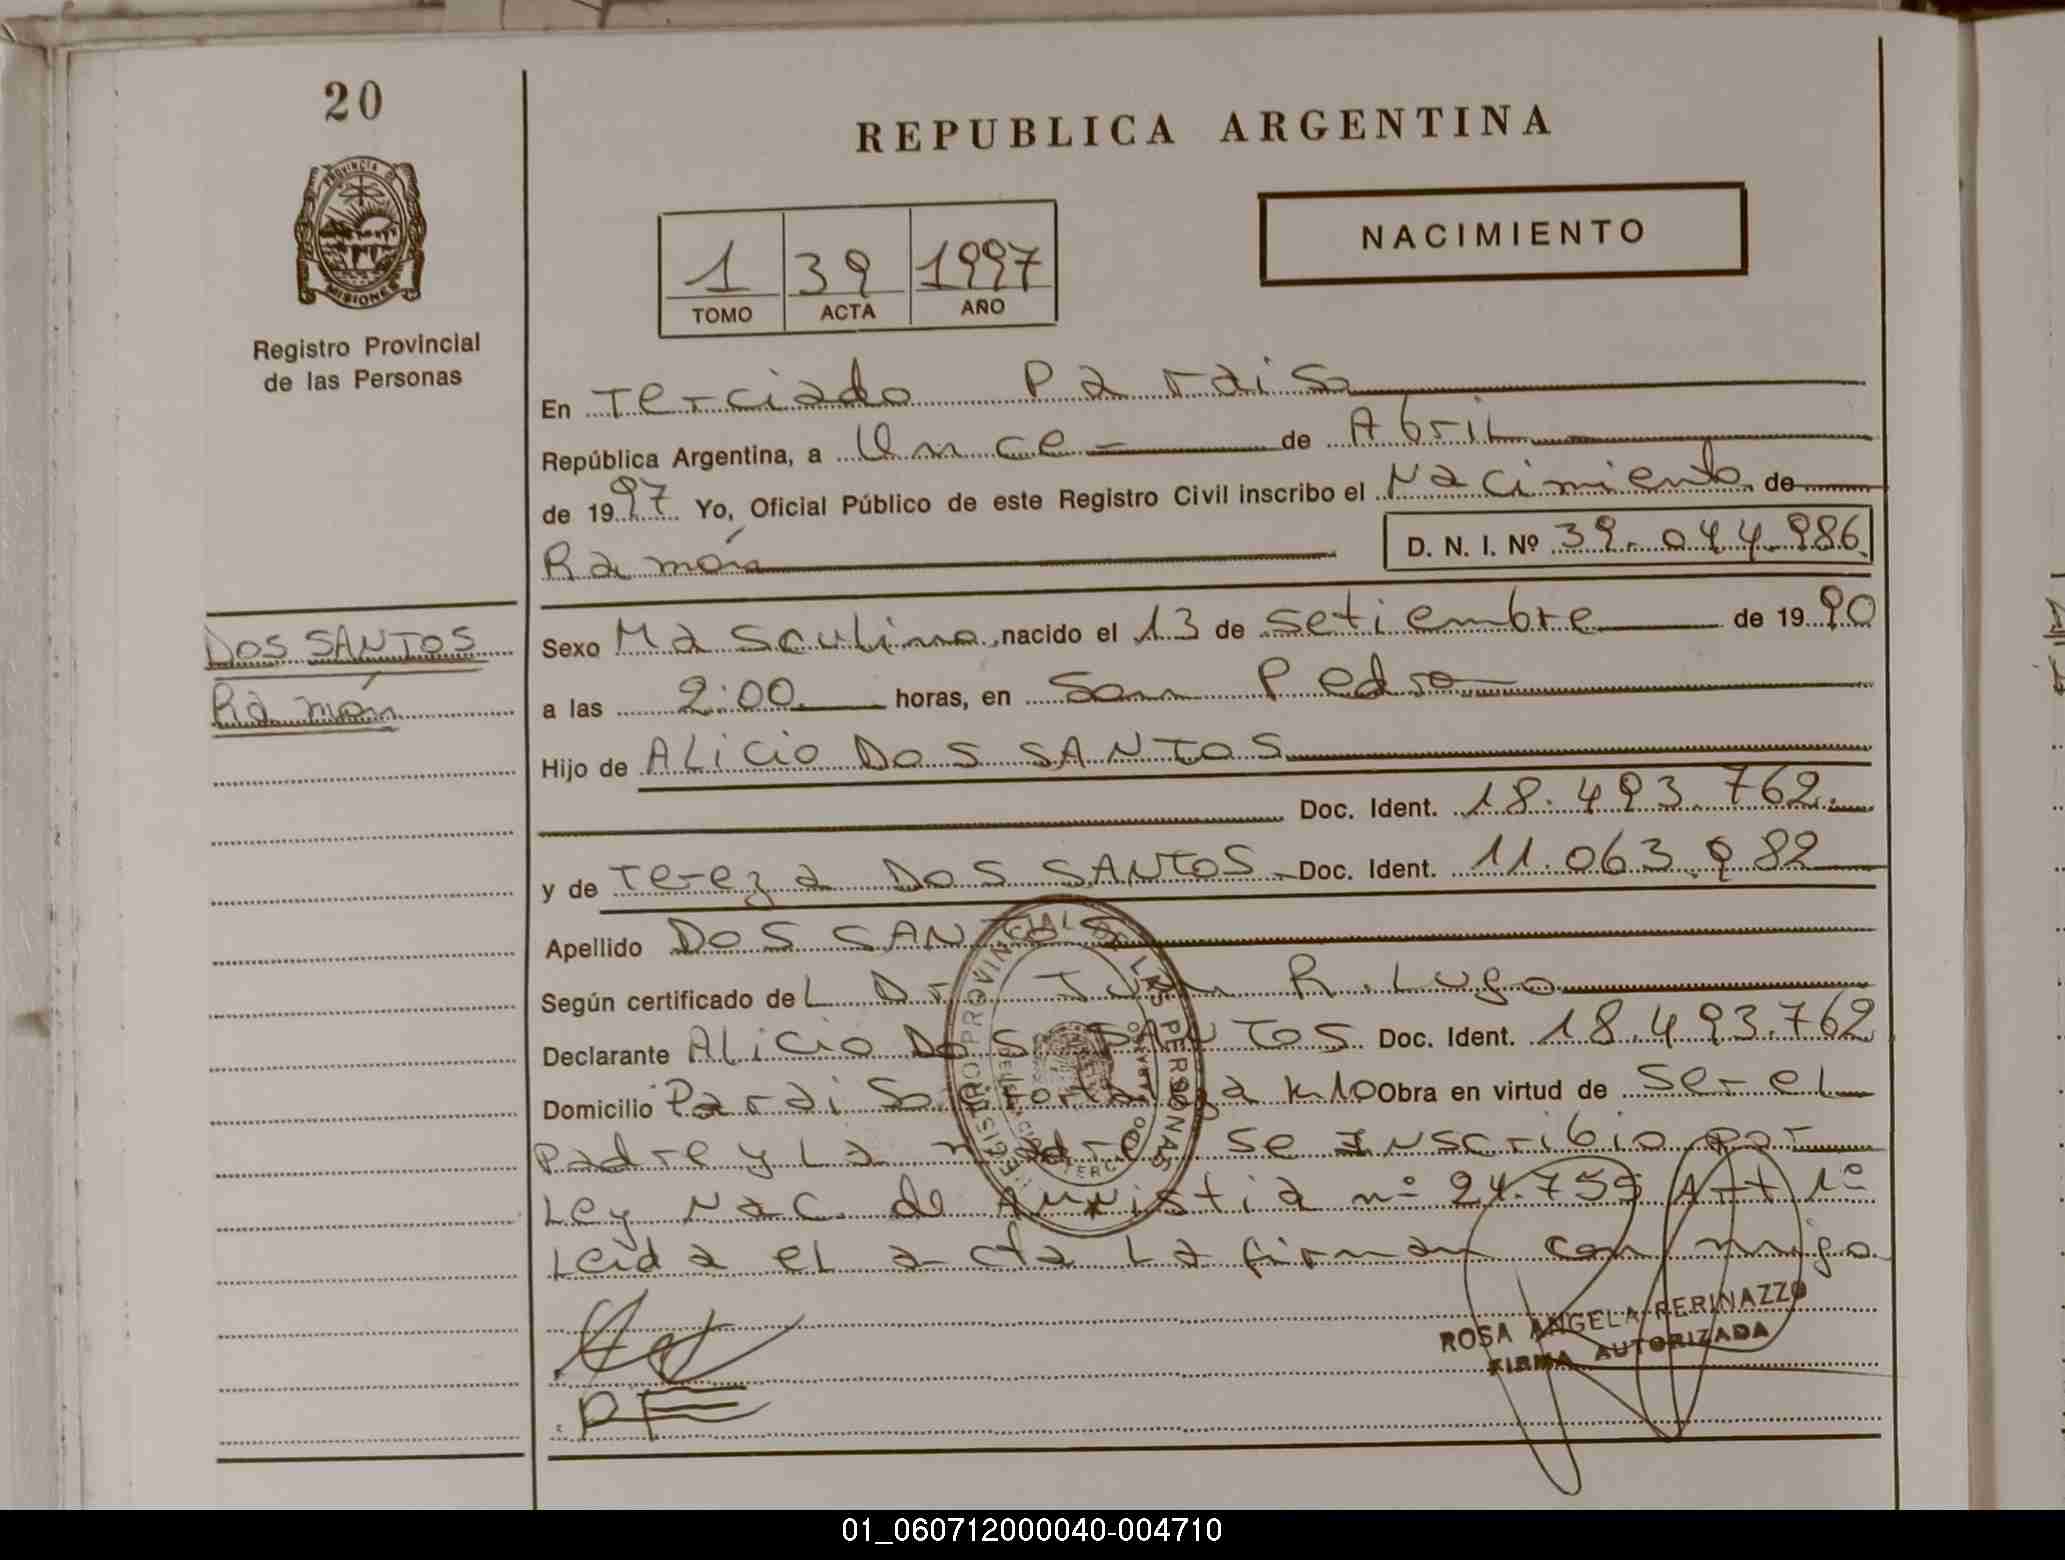 20
REPUBLICA ARGENTINA
PROVINCIA D
MISIONES
Registro Provincial
de las Personas
NACIMIENTO
1 39 1997
TOMO ACTA AÑO
En Terciado Paraiso
República Argentina, a Once de Abril
de 1997 Yo, Oficial Público de este Registro Civil inscribo el Nacimiento de
Ramón D. N. I. Nº 39.044.986
DOS SANTOS
Ramón
Sexo Masculino nacido el 13 de setiembre de 1990
a las 2:00 horas, en San Pedro
Hijo de ALicio DOS SANTOS
Doc. Ident. 18.493.762
y de Tereza DOS SANTOS Doc. Ident. 11.063.982
Apellido DOS SANTOS
Según certificado deL Dr Juan R. Lugo
Declarante ALicio DOS SANTOS Doc. Ident. 18.493.762
Domicilio Paraiso k.10 Obra en virtud de Ser eL
Padre y La madre Se Inscribio por
Ley Nac. de Amnistia nº 24.755 Art 1º
Leida eL acta La firman con migo
ROSA ANGELA PERINAZZO
FIRMA AUTORIZADA
REGISTRO PROVINCIAL DE LAS PERSONAS
01_060712000040-004710